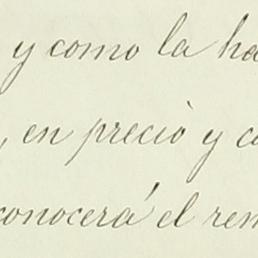 y como la ha
, en preciò y co
conocerá el rem